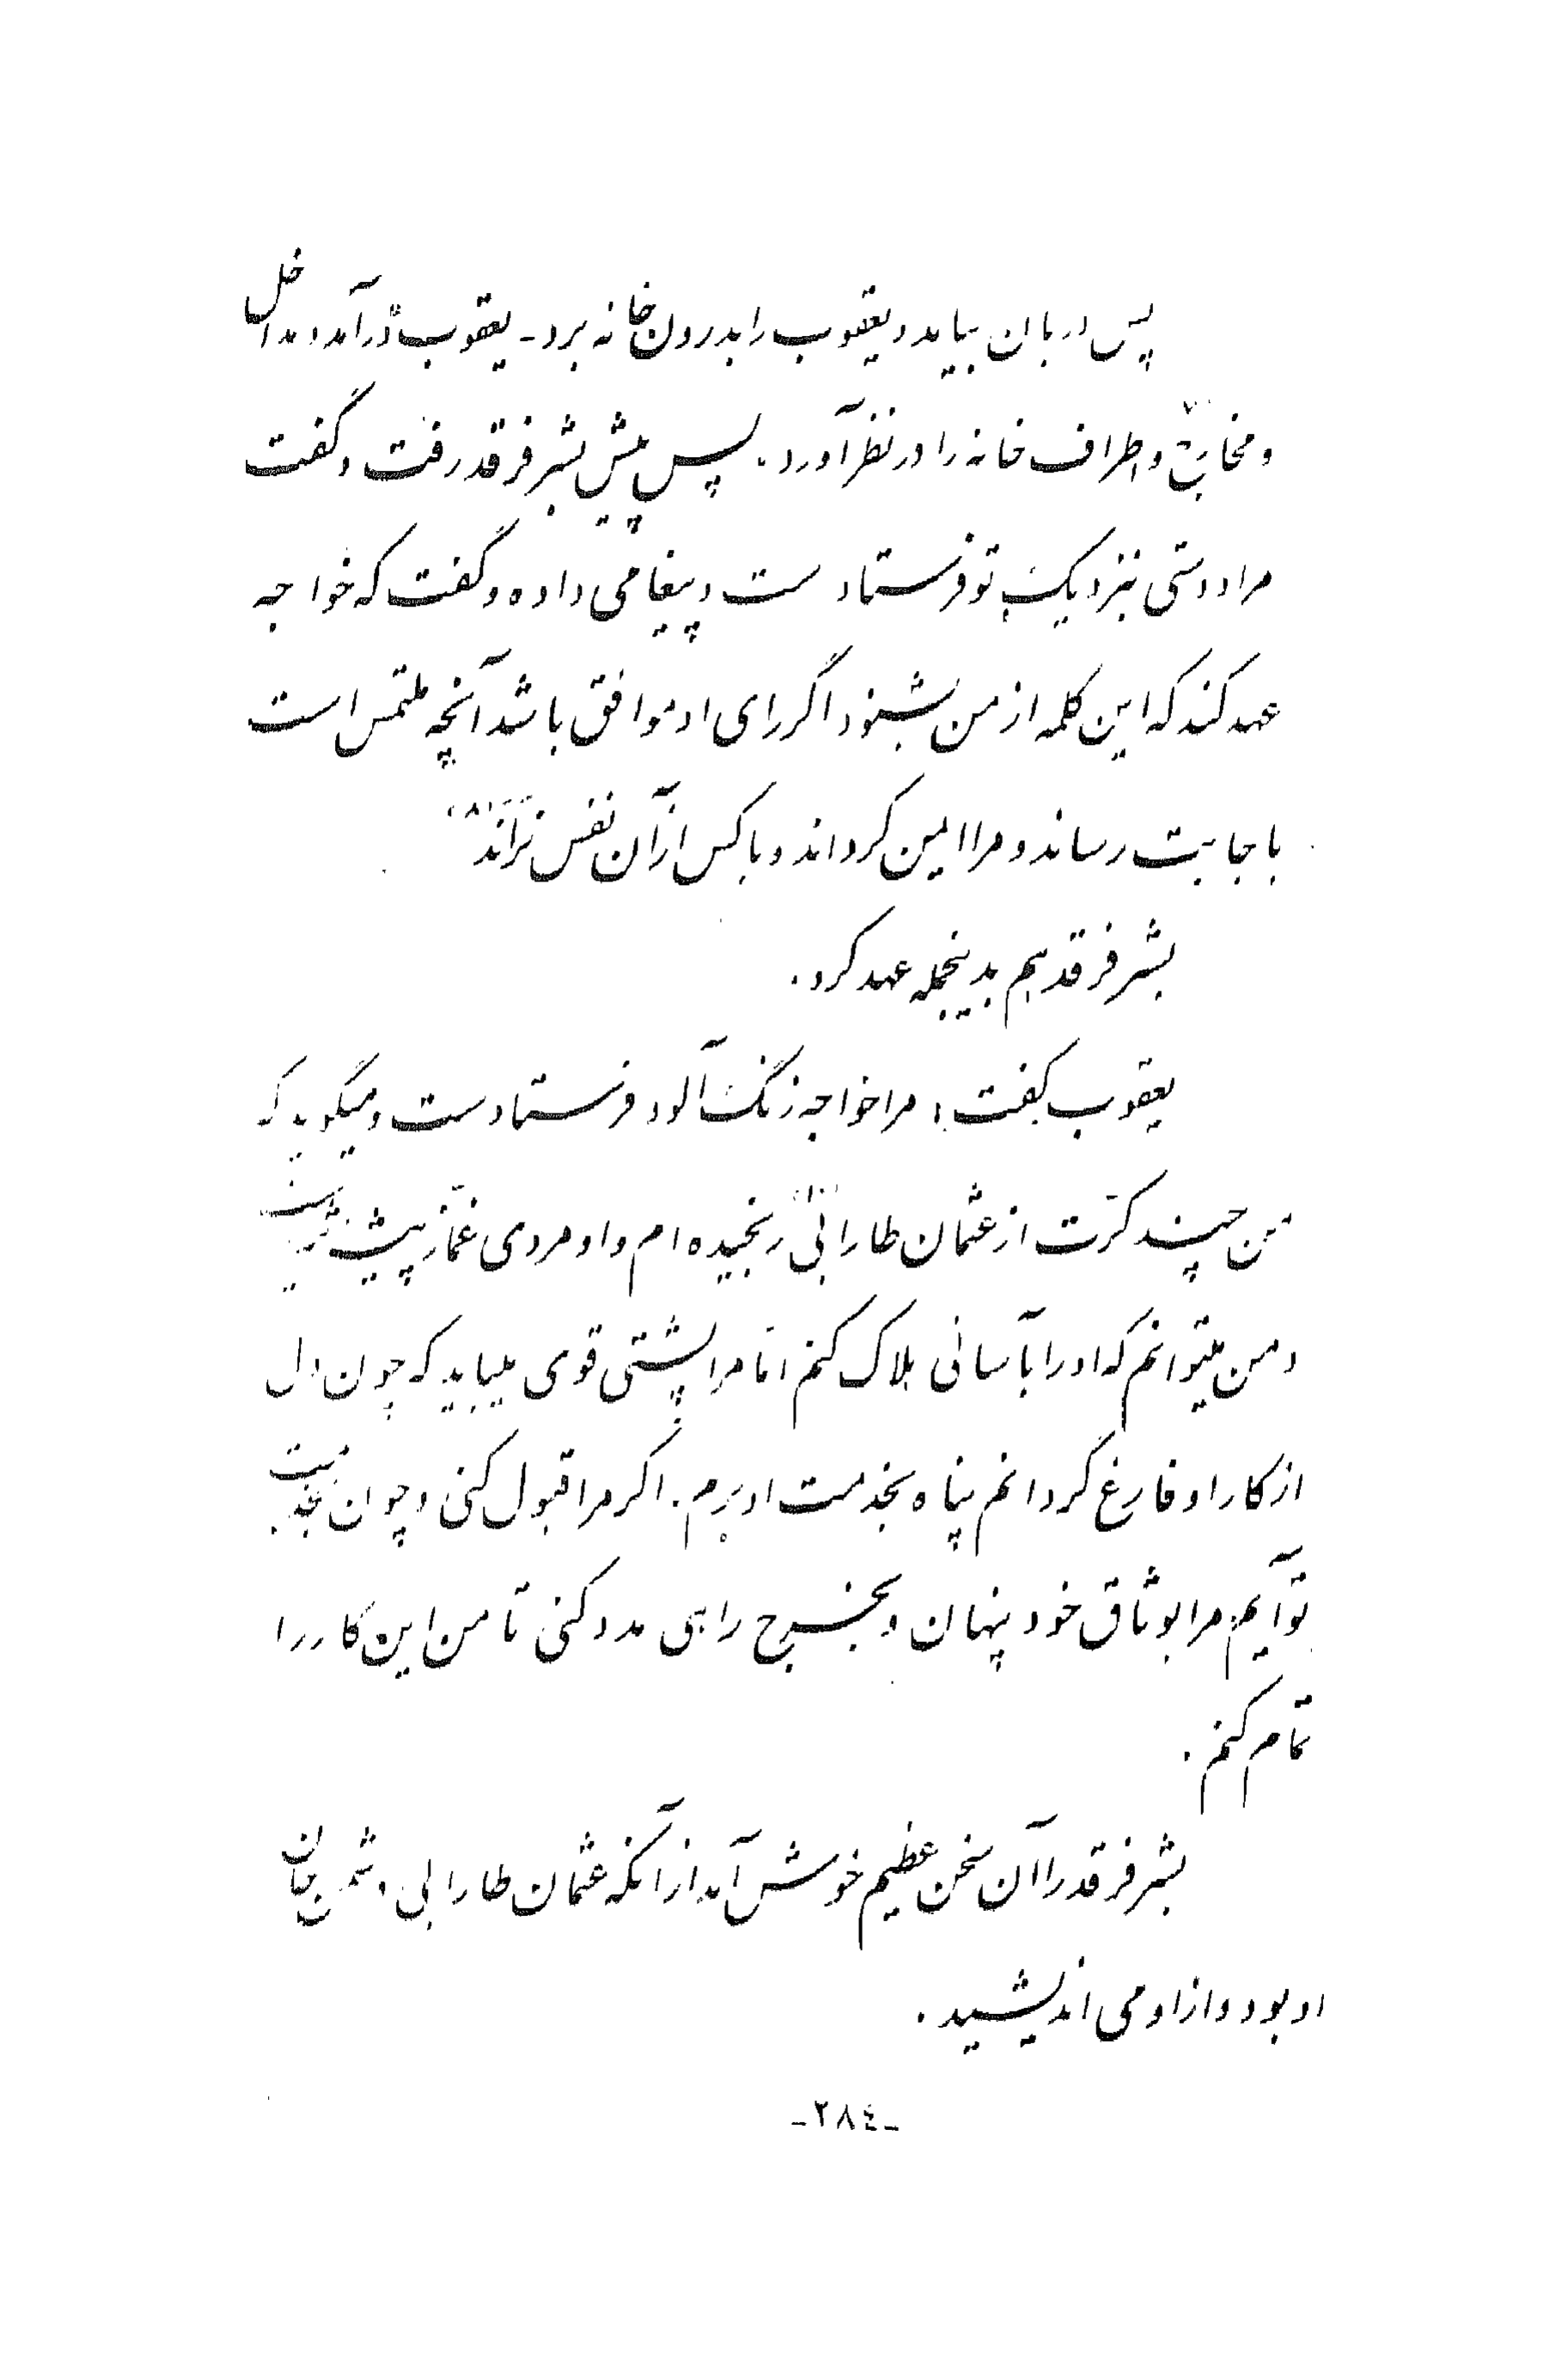 پس دربان بیامد و یعقوب را بدرون خانه برد - یعقوب درآمد و مداخل
و مخارج و اطراف خانه را در نظر آورد. پس پیش بشر فرقد رفت و گفت
مرا دوستی بنزدیک تو فرستاد ست و پیغامی داده و گفت که خواجه
عهد کند که این کلمه از من بشنود اگر رای او موافق باشد آنچه ملتمس است
باجابت رساند و مرا ایمن گرداند و با کس از آن نفس نراند (۸)
بشر فرقد هم بدینجمله عهد کرد.
یعقوب گفت: مرا خواجه زنگ آلود فرستاد ست و میگوید که
من چند کرّت از عثمان طارابی (۱۰) رنجیده ام و او مردی غمّاز پیشه
و من میتوانم که او را بآسانی هلاک کنم امّا مرا پشتی قوی میباید که چون دل
از کار او فارغ گردانم پناه بخدمت او برم. اگر مرا قبول کنی و چون بخدمت
تو آیم مرا بوثاق خود پنهان و بخرج راهی مدد کنی تا من این کار را
تمام کنم.
بشر فرقد را آن سخن عظیم خوش آمد از آنکه عثمان طارابی دشمن جان
او بود و از او می اندیشید.
-۲۸٤-